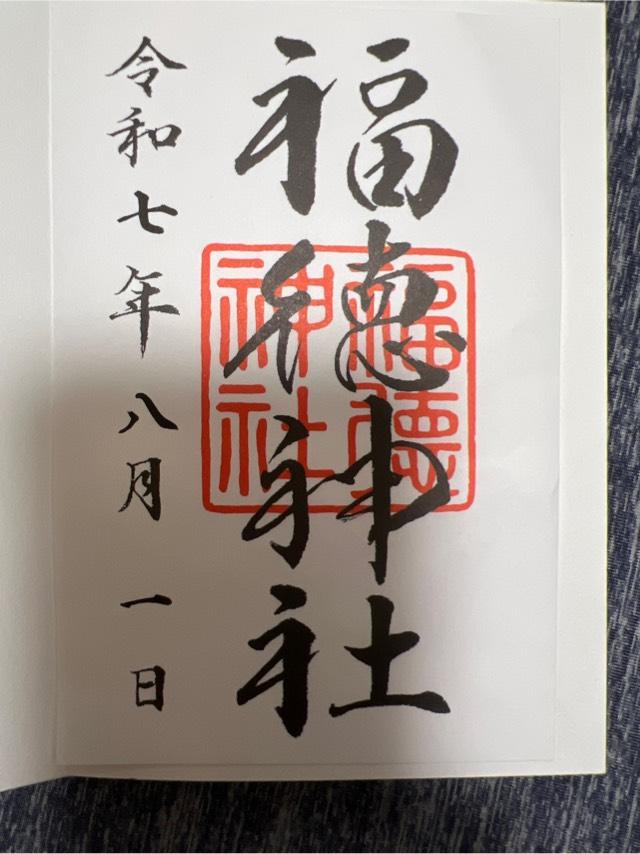 福徳神社
福徳神社
令和七年八月一日